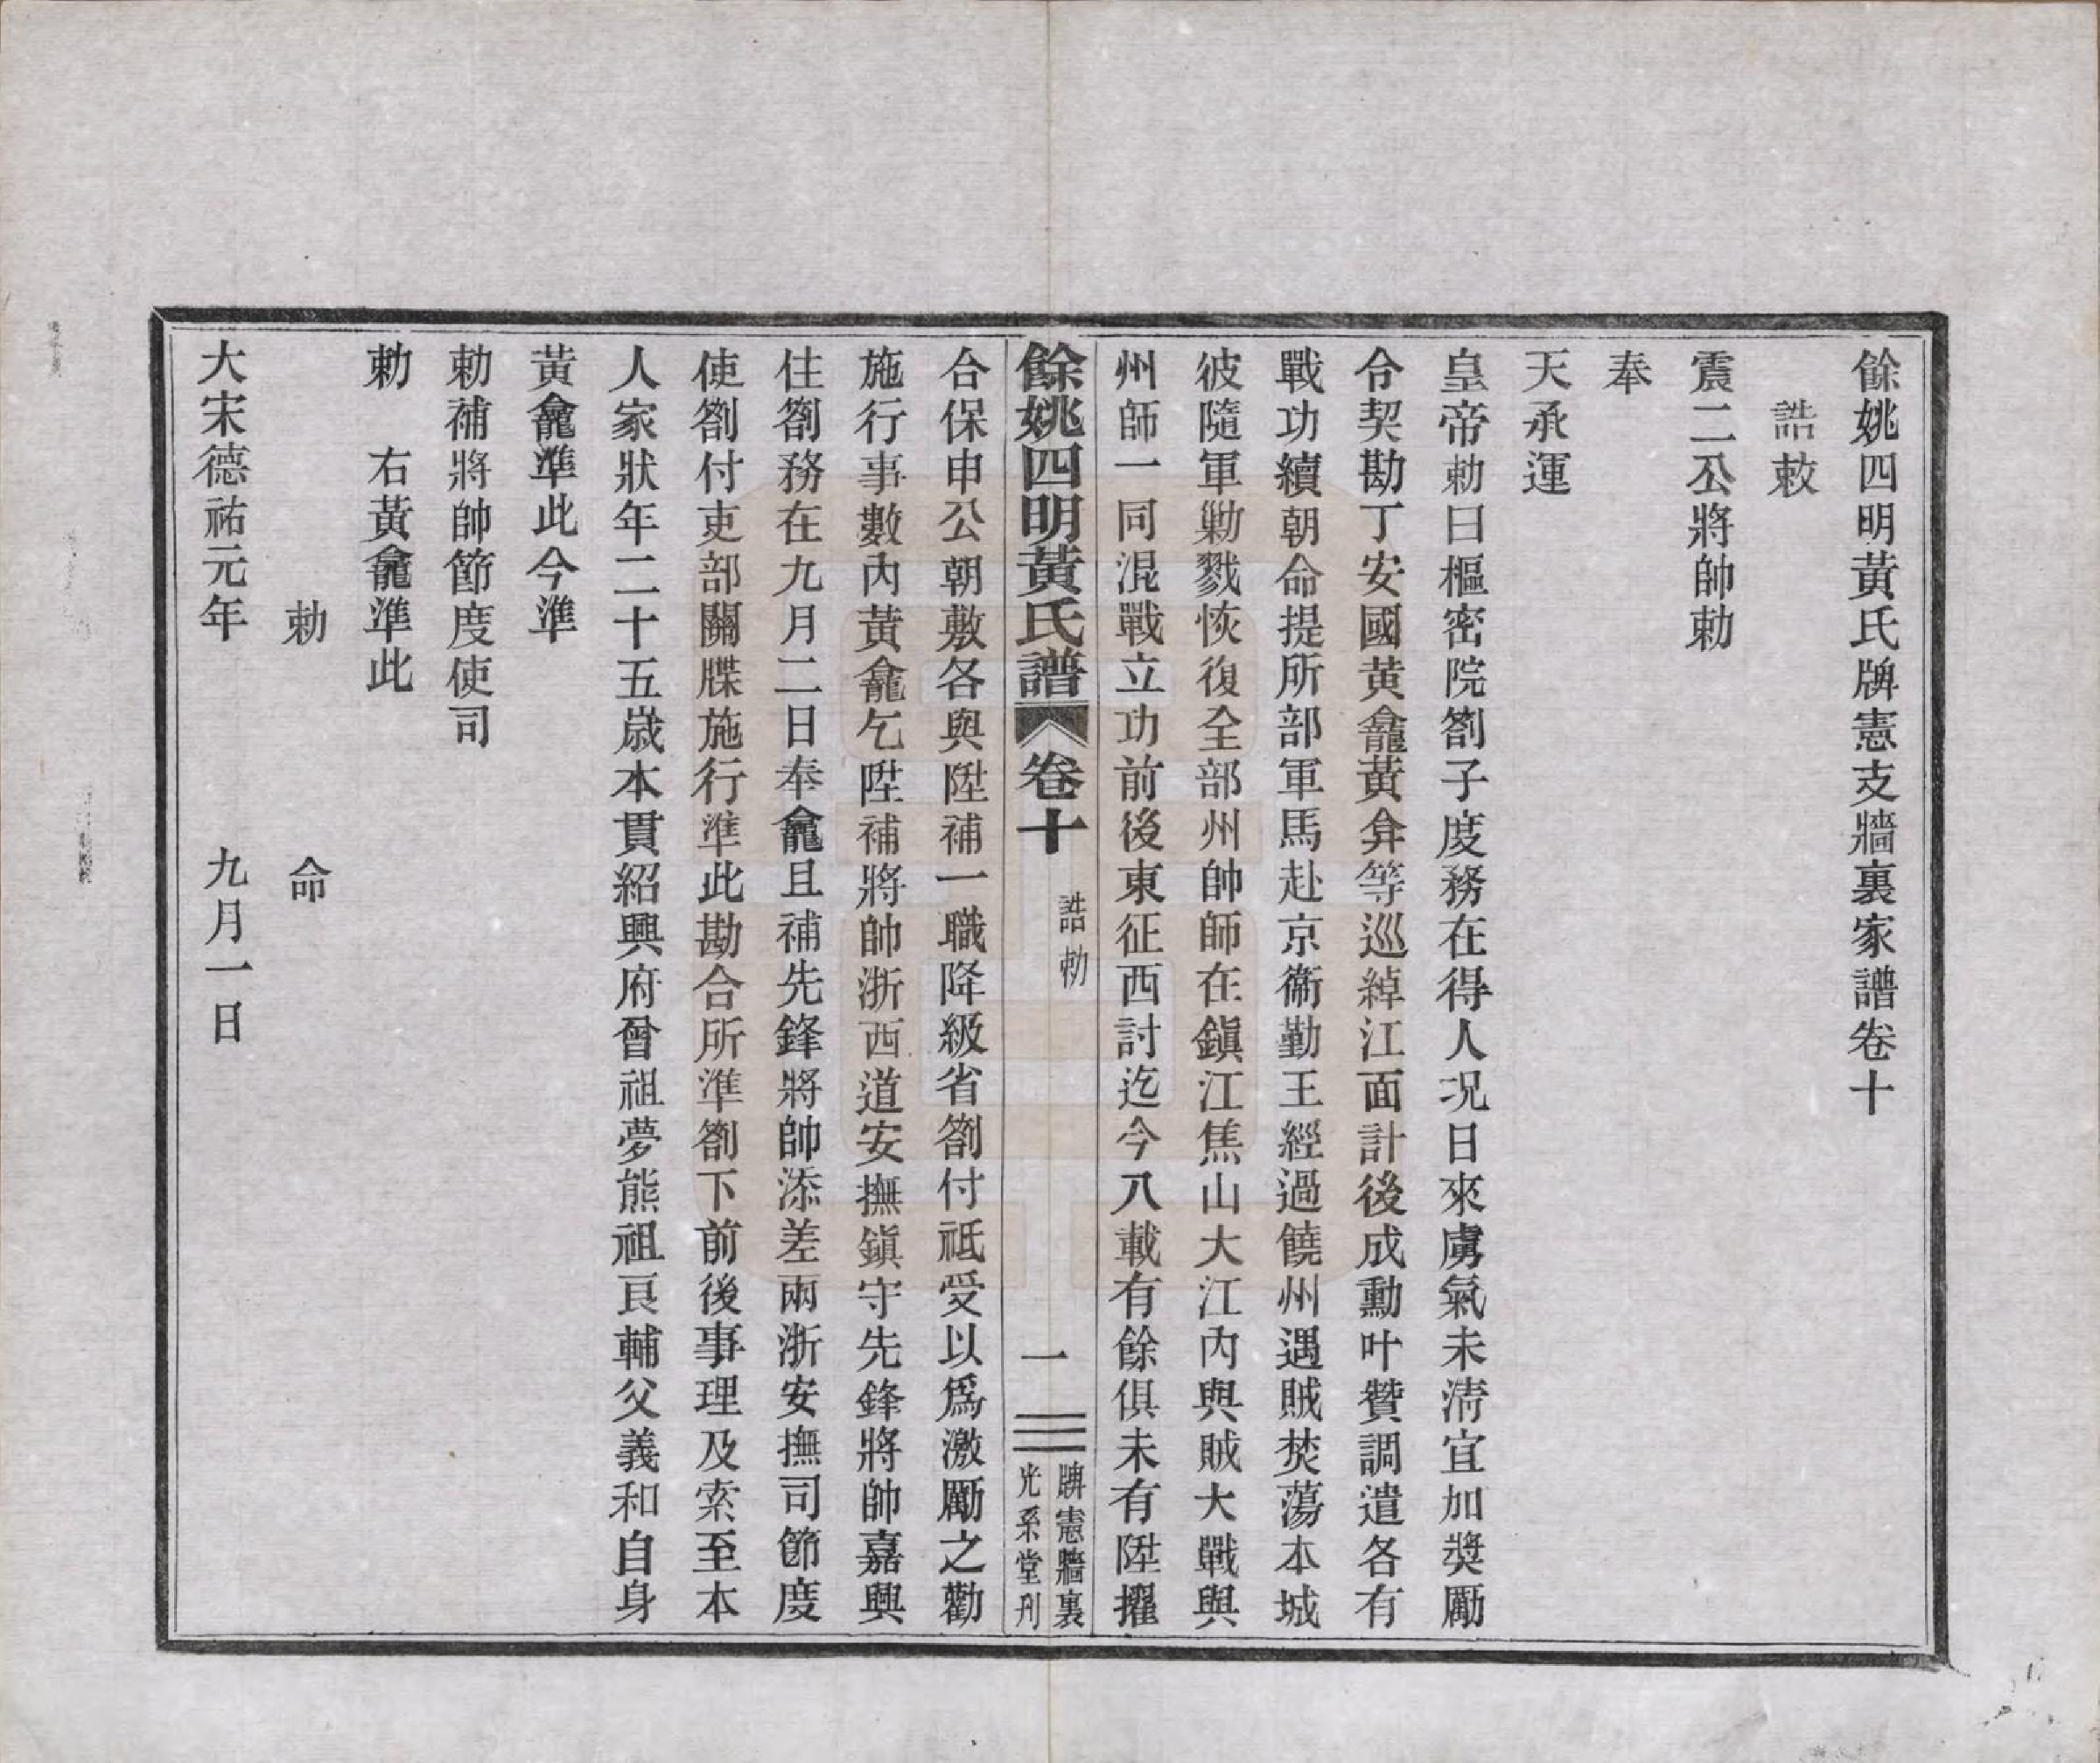 餘姚四明黃氏牌憲支牆裏家譜卷十
誥敕
震二公將帥勅
奉
天承運
皇帝勅曰樞密院劄子度務在得人况日來虜氣未淸宜加奬勵
令契勘丁安國黃龕黃弇等巡綽江面計後成勳叶贊調遣各有
戰功續朝命提所部軍馬赴京衞勤王經過饒州遇賊焚蕩本城
彼隨軍勦戮恢復全部州帥師在鎭江焦山大江內與賊大戰與
州師一同混戰立功前後東征西討迄今八載有餘俱未有陞擢
餘姚四明黃氏譜 卷十 誥勅 一 牌憲牆裏 光系堂刋
合保申公朝敷各與陞補一職降級省劄付祗受以爲激勵之勸
施行事數內黃龕乞陞補將帥浙西道安撫鎭守先鋒將帥嘉興
住劄務在九月二日奉龕且補先鋒將帥添差兩浙安撫司節度
使劄付吏部關牒施行準此勘合所準劄下前後事理及索至本
人家狀年二十五歲本貫紹興府曾祖夢熊祖良輔父義和自身
黃龕準此今準
勅補將帥節度使司
勅 右黃龕準此
勅 命
大宋德祐元年 九月一日